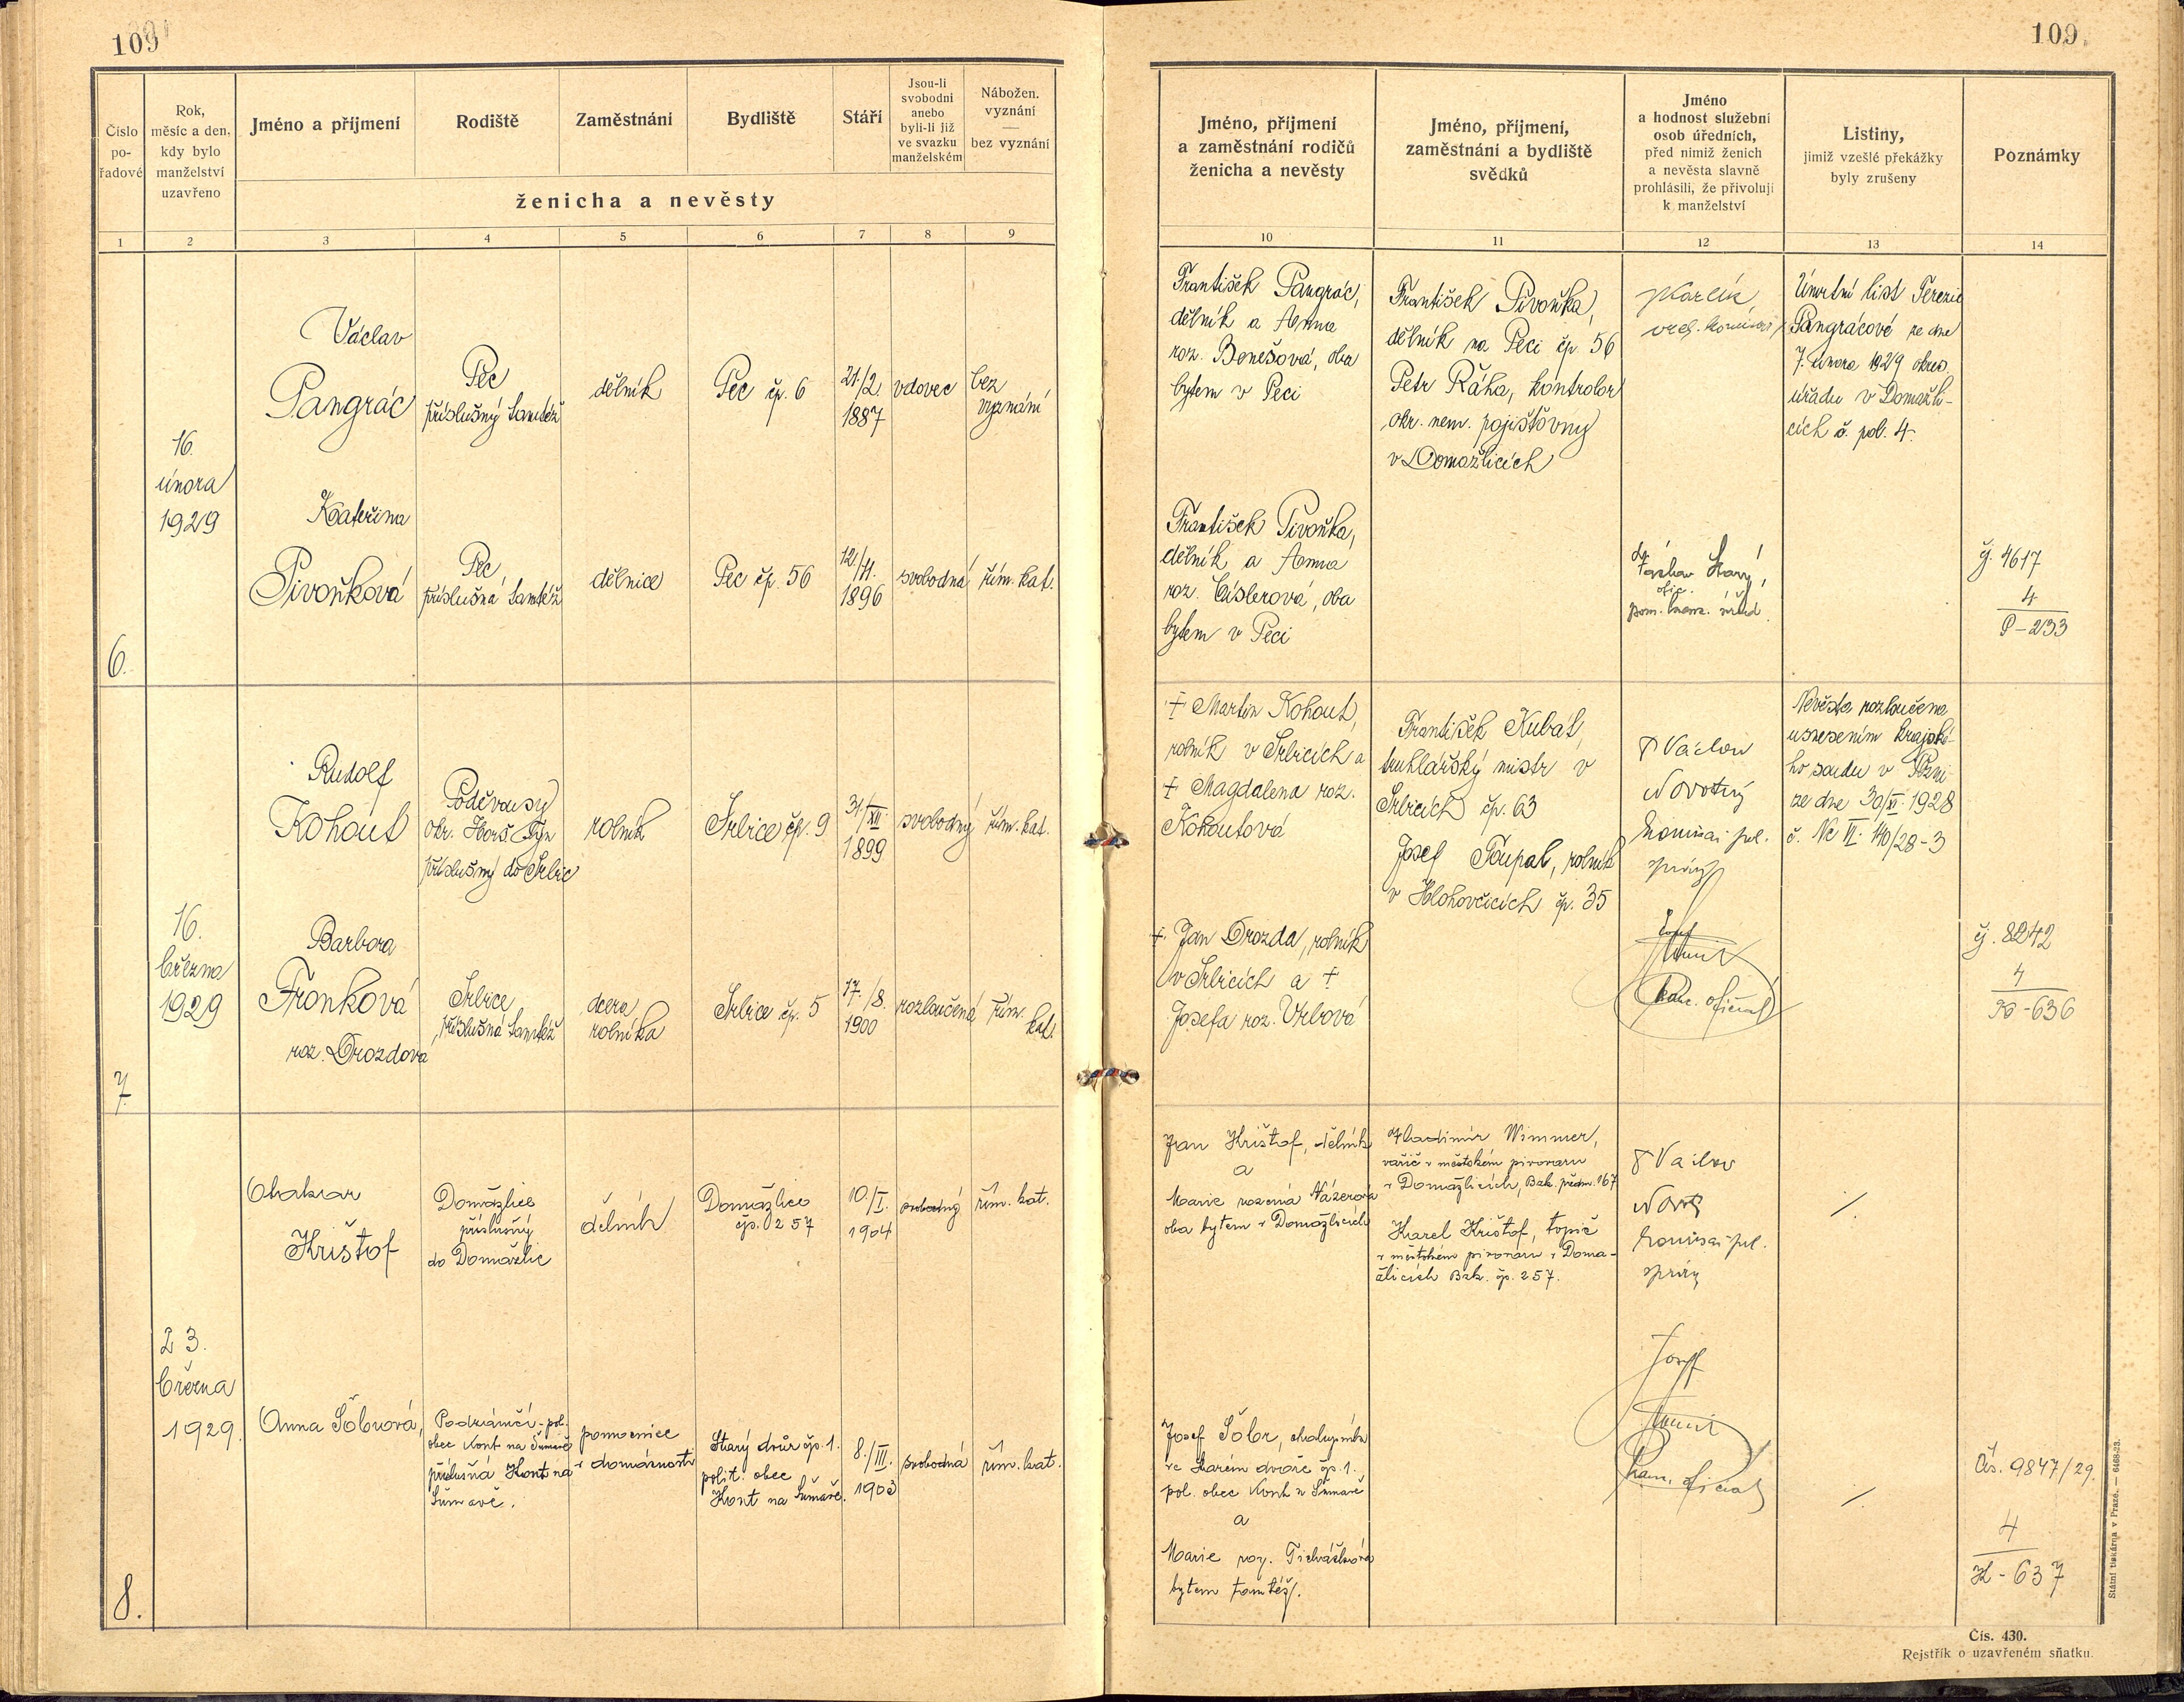 109
109
Číslo
po-
řadové
Rok,
měsíc a den,
kdy bylo
manželství
uzavřeno
Jméno a příjmení
Rodiště
Zaměstnání
Bydliště
Stáří
Jsou-li
svobodni
anebo
byli-li již
ve svazku
manželském
Nábožen.
vyznání
—
bez vyznání
ženicha a nevěsty
1 2 3 4 5 6 7 8 9
Jméno, příjmení
a zaměstnání rodičů
ženicha a nevěsty
Jméno, příjmení,
zaměstnání a bydliště
svědků
Jméno
a hodnost služební
osob úředních,
před nimiž ženich
a nevěsta slavně
prohlásili, že přivolují
k manželství
Listiny,
jimiž vzešlé překážky
byly zrušeny
Poznámky
10 11 12 13 14
6.
16.
února
1929
Václav
Pangrác
Pec
příslušný tamtéž
dělník
Pec čp. 6
21./2.
1887
vdovec
bez
vyznání
Kateřina
Pivoňková
Pec
příslušná tamtéž
dělnice
Pec čp. 56
12./4.
1896
svobodná
řím. kat.
František Pangrác,
dělník a Anna
roz. Benešová, oba
bytem v Peci
František Pivoňka,
dělník a Anna
roz. Císlerová, oba
bytem v Peci
František Pivoňka,
dělník na Peci čp. 56
Petr Ráha, kontrolor
okr. nem. pojišťovny
v Domažlicích
Starý,
Úmrtní list Terezie
Pangrácové ze dne
7. února 1929 okres.
úřadu v Domažli-
cích č. pol. 4.
čj. 4617
4
P-233
7.
16.
března
1929
Rudolf
Kohout
Poděvousy
okr. Horš. Týn
příslušný do Srbic
rolník
Srbice čp. 9
31/XII.
1899
svobodný
řím. kat.
Barbora
Fronková
roz. Drozdová
Srbice
příslušná tamtéž
dcera
rolníka
Srbice čp. 5
17./8.
1900
rozloučená
řím.
kat.
+ Martin Kohout,
rolník v Srbicích a
+ Magdalena roz.
Kohoutová
+ Jan Drozda, rolník
v Srbicích a +
Josefa roz. Vrbová
František Kubát,
truhlářský mistr v
Srbicích čp. 63
Josef Toupal, rolník
v Hlohovčicích čp. 35
Václav
Novotný
komisař pol.
správy
Josef
kanc. oficiál
Nevěsta rozloučena
usnesením krajské-
ho soudu v Plzni
ze dne 30/XI. 1928
č. Nc VI. 140/28-3
čj. 8242
4
K-636
8.
23.
března
1929.
Otakar
Krištof
Domažlice
příslušný
do Domažlic
dělník
Domažlice
čp. 257
10./I.
1904
svobodný
řím. kat.
Anna Šobrová,
pol.
obec Kout na Šumavě
příslušná Kout na
Šumavě.
pomocnice
v domácnosti
Starý dvůr čp. 1.
polit. obec
Kout na Šumavě.
8./III.
1903
svobodná
řím. kat.
Jan Krištof, dělník
a
Marie rozená
oba bytem v Domažlicích
Josef Šobr, chalupník
ve Starém dvoře čp. 1.
pol. obec Kout n Šumavě
a
Marie roz.
bytem tamtéž.
Vladimír Wimmer,
vařič v městském pivovaru
v Domažlicích, Bez. předm. 167
Karel Krištof, topič
v městském pivovaru v Doma-
žlicích Bez. čp. 257.
Václav
komisař pol.
správy
Josef
kanc. oficiál
Čís. 9847/29.
4
K-637
Státní tiskárna v Praze. — 6468-23.
Čís. 430.
Rejstřík o uzavřeném sňatku.